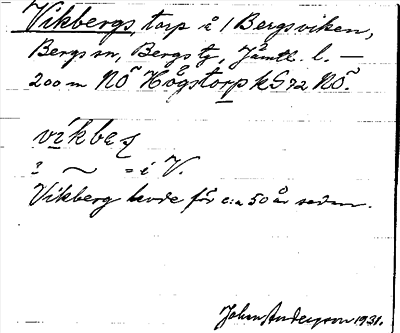 Vikbergs, torp å / Bergsviken,
Bergs sn, Bergs tg, Jämtl. l. —
200 m NÖ Högstorp k G 72 NÖ.
vikbeʃ
i ~ = i V.
Vikberg levde för c:a 50 år sedan.
Johan Anderson 1931.